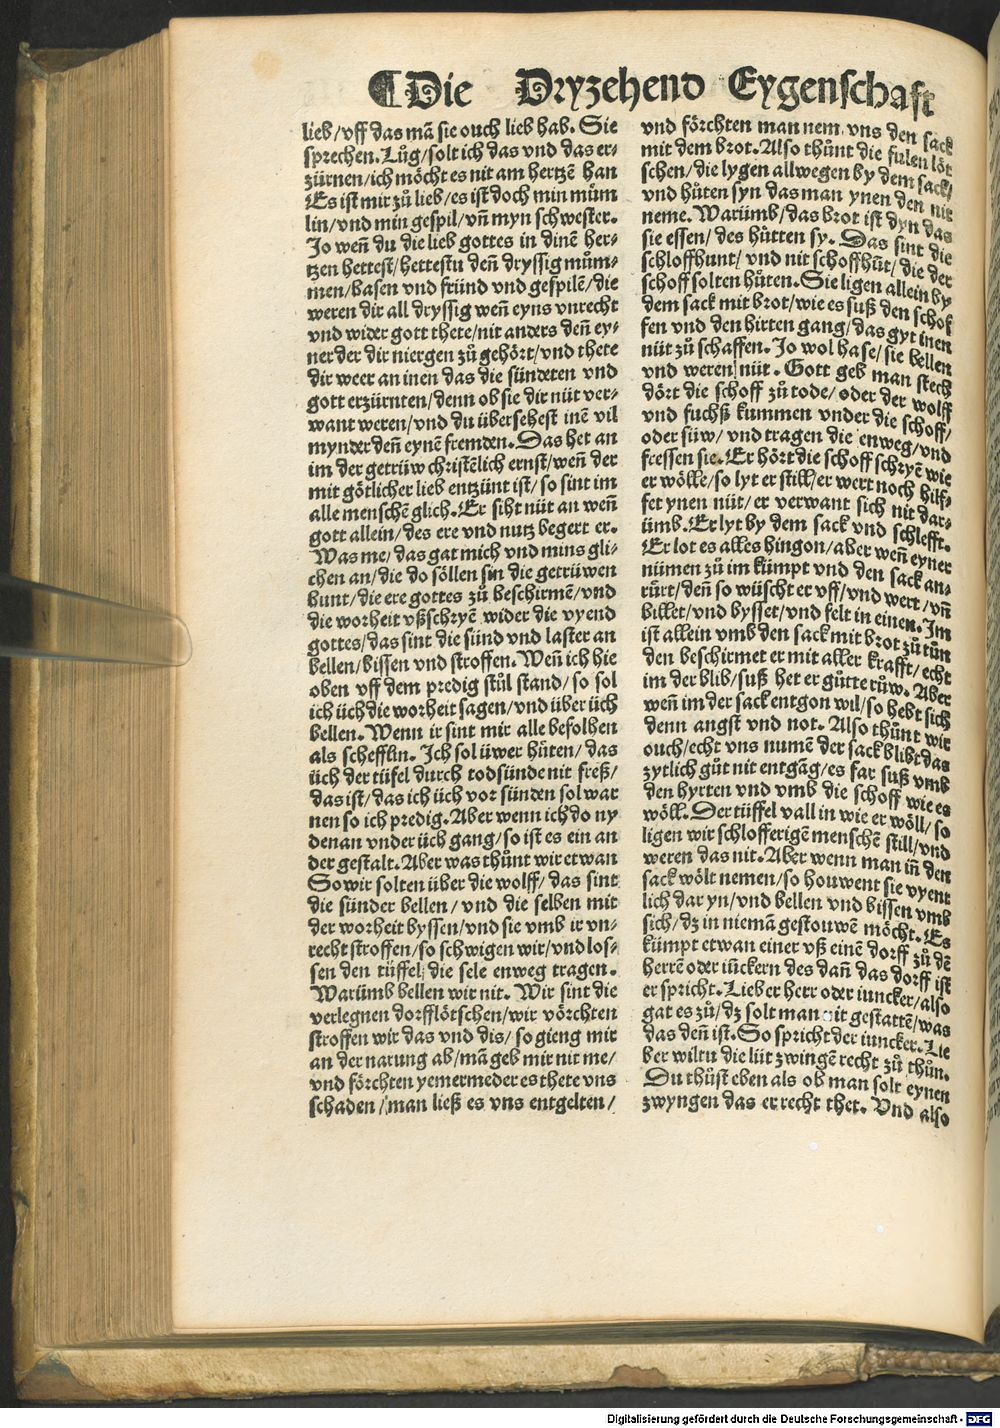 ¶Die Dryzehend Eygenschaft
lieb/vff das mã sie ouch lieb hab. Sie
sprechen. Lůg/solt ich das vnd das er-
zürnen/ich möcht es nit am hertzẽ han
Es ist mir zů lieb/es ist doch min mům
lin/vnd min gespil/vñ myn schwester.
Jo weñ du die lieb gottes in dinẽ her-
tzen hettest/hettestu deñ dryssig mům-
men/basen vnd fründ vnd gespilẽ/die
weren dir all dryssig weñ eyns vnrecht
vnd wider gott thete/nit anders deñ ey-
ner der dir niergen zů gehört/vnd thete
dir weer an inen das die sündeten vnd
gott erzürnten/denn ob sie dir nüt ver-
want weren/vnd du übersehest inẽ vil
mynder deñ eynẽ fremden. Das het an
im der getrüw christẽlich ernst/weñ der
mit götlicher lieb entzünt ist/so sint im
alle menschẽ glich. Er siht nüt an weñ
gott allein/des ere vnd nutz begert er.
Was me/das gat mich vnd mins gli-
chen an/die do söllen sin die getrüwen
hunt/die ere gottes zů beschirmẽ/vnd
die worheit vßschryẽ wider die vyend
gottes/das sint die sünd vnd laster an
bellen/bissen vnd stroffen. Weñ ich hie
oben vff dem predig stůl stand/so sol
ich üch die worheit sagen/vnd über üch
bellen. Wenn ir sint mir alle befolhen
als schefflin. Ich sol üwer hůten/das
üch der tüfel durch todsünde nit freß/
das ist/das ich üch vor sünden sol war
nen so ich predig. Aber wenn ich do ny
denan vnder üch gang/so ist es ein an
der gestalt. Aber was thůnt wir etwan
So wir solten über die wolff/das sint
die sünder bellen/vnd die selben mit
der worheit byssen/vnd sie vmb ir vn-
recht stroffen/so schwigen wir/vnd los-
sen den tüffel die sele enweg tragen.
Warümb bellen wir nit. Wir sint die
verlegnen dorfflötschen/wir vörchten
stroffen wir das vnd dis/so gieng mir
an der narung ab/mã geb mir nit me/
vnd förchten yemermeder es thete vns
schaden/man ließ es vns entgelten/
vnd förchten man nem vns den sack
mit dem brot. Also thůnt die fulen löt
schen/die lygen allwegen by dem sack/
vnd hůten syn das man ynen den nit
neme. Warümb/das brot ist dyn das
sie essen/des hůtten sy. Das sint die
schloffhunt/vnd nit schoffhũt/die der
schoff solten hůten. Sie ligen allein by
dem sack mit brot/wie es suß den schof
fen vnd den hirten gang/das gyt inen
nüt zů schaffen. Jo wol hase/sie bellen
vnd weren nüt. Gott geb man stech
dört die schoff zů tode/oder der wolff
vnd fuchß kummen vnder die schoff/
oder süw/vnd tragen die enweg/vnd
fressen sie. Er hört die schoff schryẽ wie
er wölle/so lyt er still/er wert noch hilf-
fet ynen nüt/er verwant sich nit dar-
ümb. Er lyt by dem sack vnd schlefft.
Er lot es alles hingon/aber weñ eyner
nümen zů im kümpt vnd den sack an-
rürt/deñ so wüscht er vff/vnd wert/vñ
billet/vnd bysset/vnd felt in einen. Im
ist allein vmb den sack mit brot zů tůn
den beschirmet er mit aller krafft/echt
im der blib/suß het er gůtte růw. Aber
weñ im der sack entgon wil/so hebt sich
denn angst vnd not. Also thůnt wir
ouch/echt vns numẽ der sack blibt das
zytlich gůt nit entgãg/es far suß vmb
den hyrten vnd vmb die schoff wie es
wöll. Der tüffel vall in wie er wöll/so
ligen wir schlofferigẽ menschẽ still/vnd
weren das nit. Aber wenn man iñ den
sack wölt nemen/so houwent sie vyent
lich dar yn/vnd bellen vnd bissen vmb
sich/dz in niemã gestouwẽ möcht. Es
kümpt etwan einer vß einẽ dorff zů dẽ
herrẽ oder iũckern des dañ das dorff ist
er spricht. Lieber herr oder iuncker/also
gat es zů/dz solt man nit gestattẽ/was
das deñ ist. So spricht der iuncker. Lie
ber wiltu die lüt zwingẽ recht zů thůn.
Du thůst eben als ob man solt eynen
zwyngen das er recht thet. Vnd also
Digitalisierung gefördert durch die Deutsche Forschungsgemeinschaft - DFG